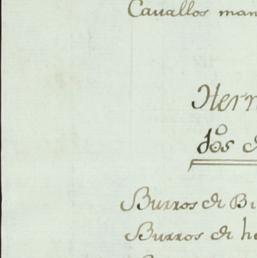 Cavallos man
Herr
dos d
Burros de Bu
Burros de he